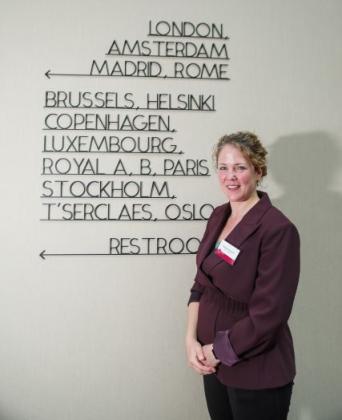 LONDON,
AMSTERDAM
MADRID, ROME
BRUSSELS, HELSINKI
COPENHAGEN,
LUXEMBOURG,
ROYAL A, B, PARIS
STOCKHOLM,
T'SERCLAES, OSLO
RESTROO